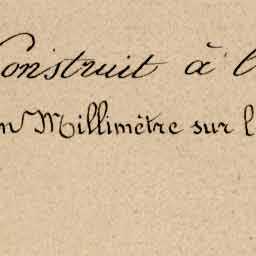 Construit à l
n Millimètre sur l